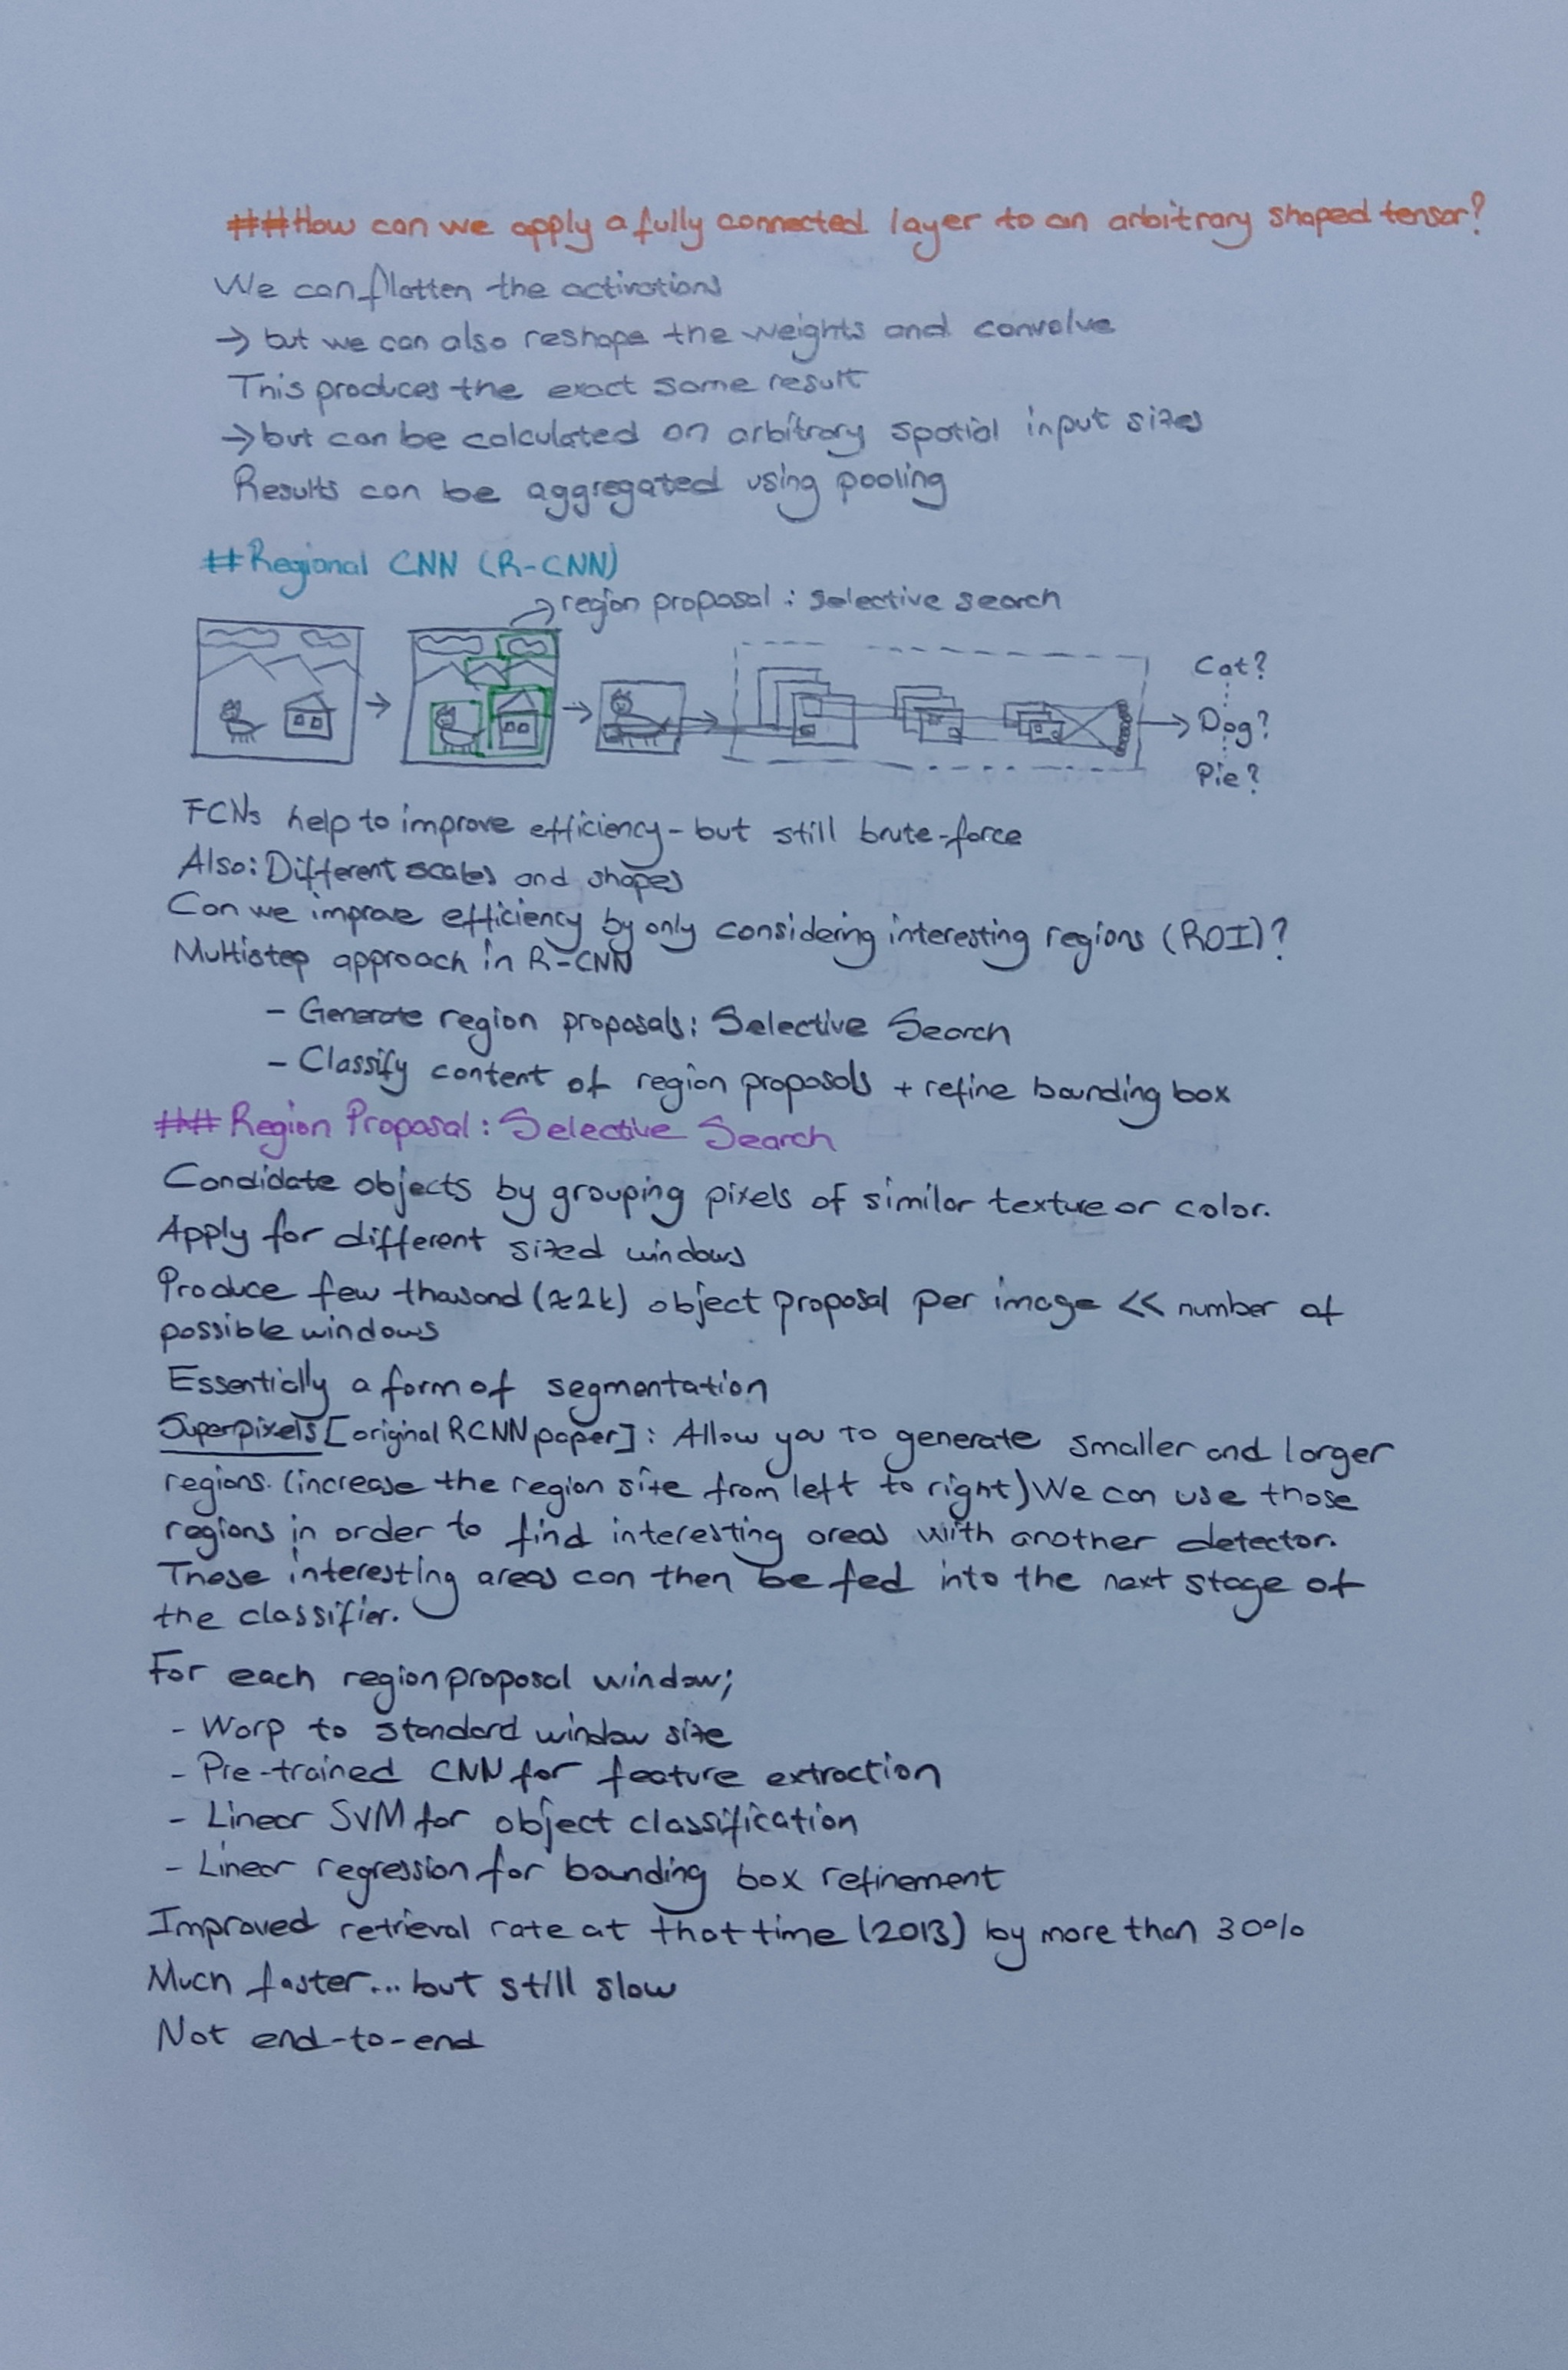 ##How can we apply a fully connected layer to an arbitrary shaped tensor?
We can flatten the activations
→ but we can also reshape the weights and convolve
This produces the exact same result
→ but can be calculated on arbitrary spatial input sizes
Results can be aggregated using pooling
#Regional CNN (R-CNN)
region proposal : selective search
Cat?
Dog?
Pie?
FCNs help to improve efficiency - but still brute-force
Also: Different scales and shapes
Can we improve efficiency by only considering interesting regions (ROI)?
Multistep approach in R-CNN
- Generate region proposals: Selective Search
- Classify content of region proposals + refine bounding box
## Region Proposal : Selective Search
Candidate objects by grouping pixels of similar texture or color.
Apply for different sized windows
Produce few thousand (≈2k) object proposal per image << number of
possible windows
Essentially a form of segmentation
Superpixels [original RCNN paper] : Allow you to generate smaller and larger
regions. (increase the region size from left to right) We can use those
regions in order to find interesting areas with another detector.
These interesting areas can then be fed into the next stage of
the classifier.
For each region proposal window;
- Warp to standard window size
- Pre-trained CNN for feature extraction
- Linear SVM for object classification
- Linear regression for bounding box refinement
Improved retrieval rate at that time (2013) by more than 30%
Much faster... but still slow
Not end-to-end